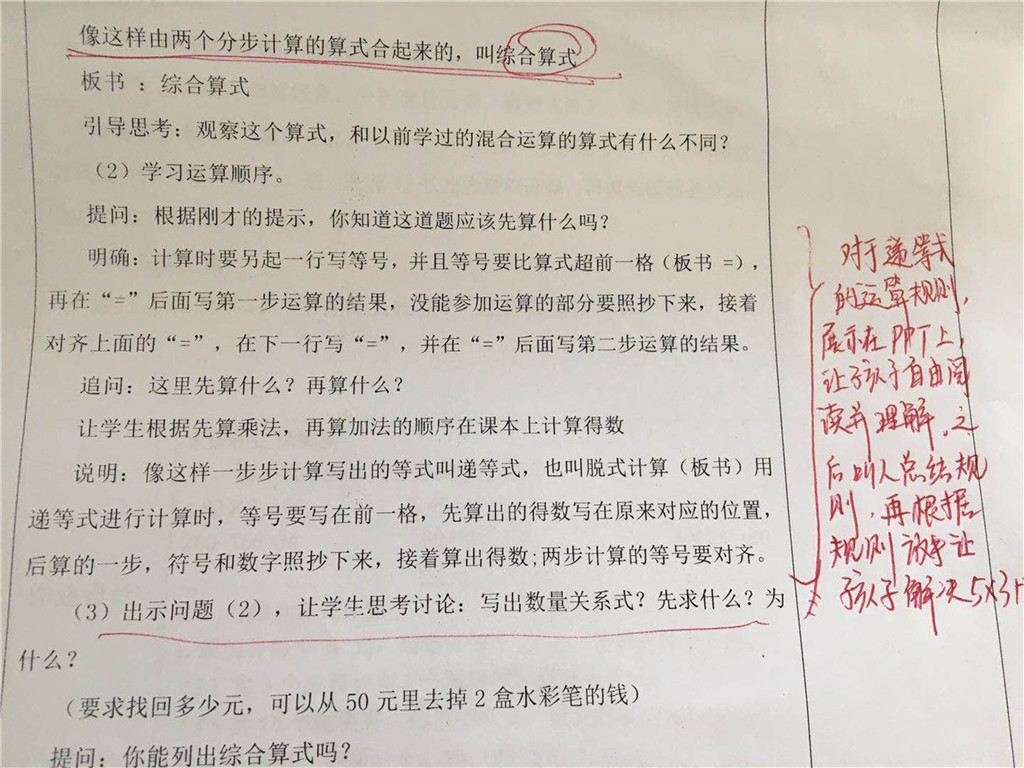 像这样由两个分步计算的算式合起来的，叫综合算式
板书 ：综合算式
引导思考：观察这个算式，和以前学过的混合运算的算式有什么不同？
（2）学习运算顺序。
提问：根据刚才的提示，你知道这道题应该先算什么吗？
明确：计算时要另起一行写等号，并且等号要比算式超前一格（板书 =），
再在“=”后面写第一步运算的结果，没能参加运算的部分要照抄下来，接着
对齐上面的“=”，在下一行写“=”，并在“=”后面写第二步运算的结果。
追问：这里先算什么？再算什么？
让学生根据先算乘法，再算加法的顺序在课本上计算得数
说明：像这样一步步计算写出的等式叫递等式，也叫脱式计算（板书）用
递等式进行计算时，等号要写在前一格，先算出的得数写在原来对应的位置，
后算的一步，符号和数字照抄下来，接着算出得数；两步计算的等号要对齐。
（3）出示问题（2），让学生思考讨论：写出数量关系式？先求什么？为
什么？
（要求找回多少元，可以从 50 元里去掉 2 盒水彩笔的钱）
提问：你能列出综合算式吗？
对于递等式
的运算规则，
展示在PPT上，
让孩子自由阅
读并理解，之
后叫人总结规
则，再根据
规则放手让
孩子解决5×3+